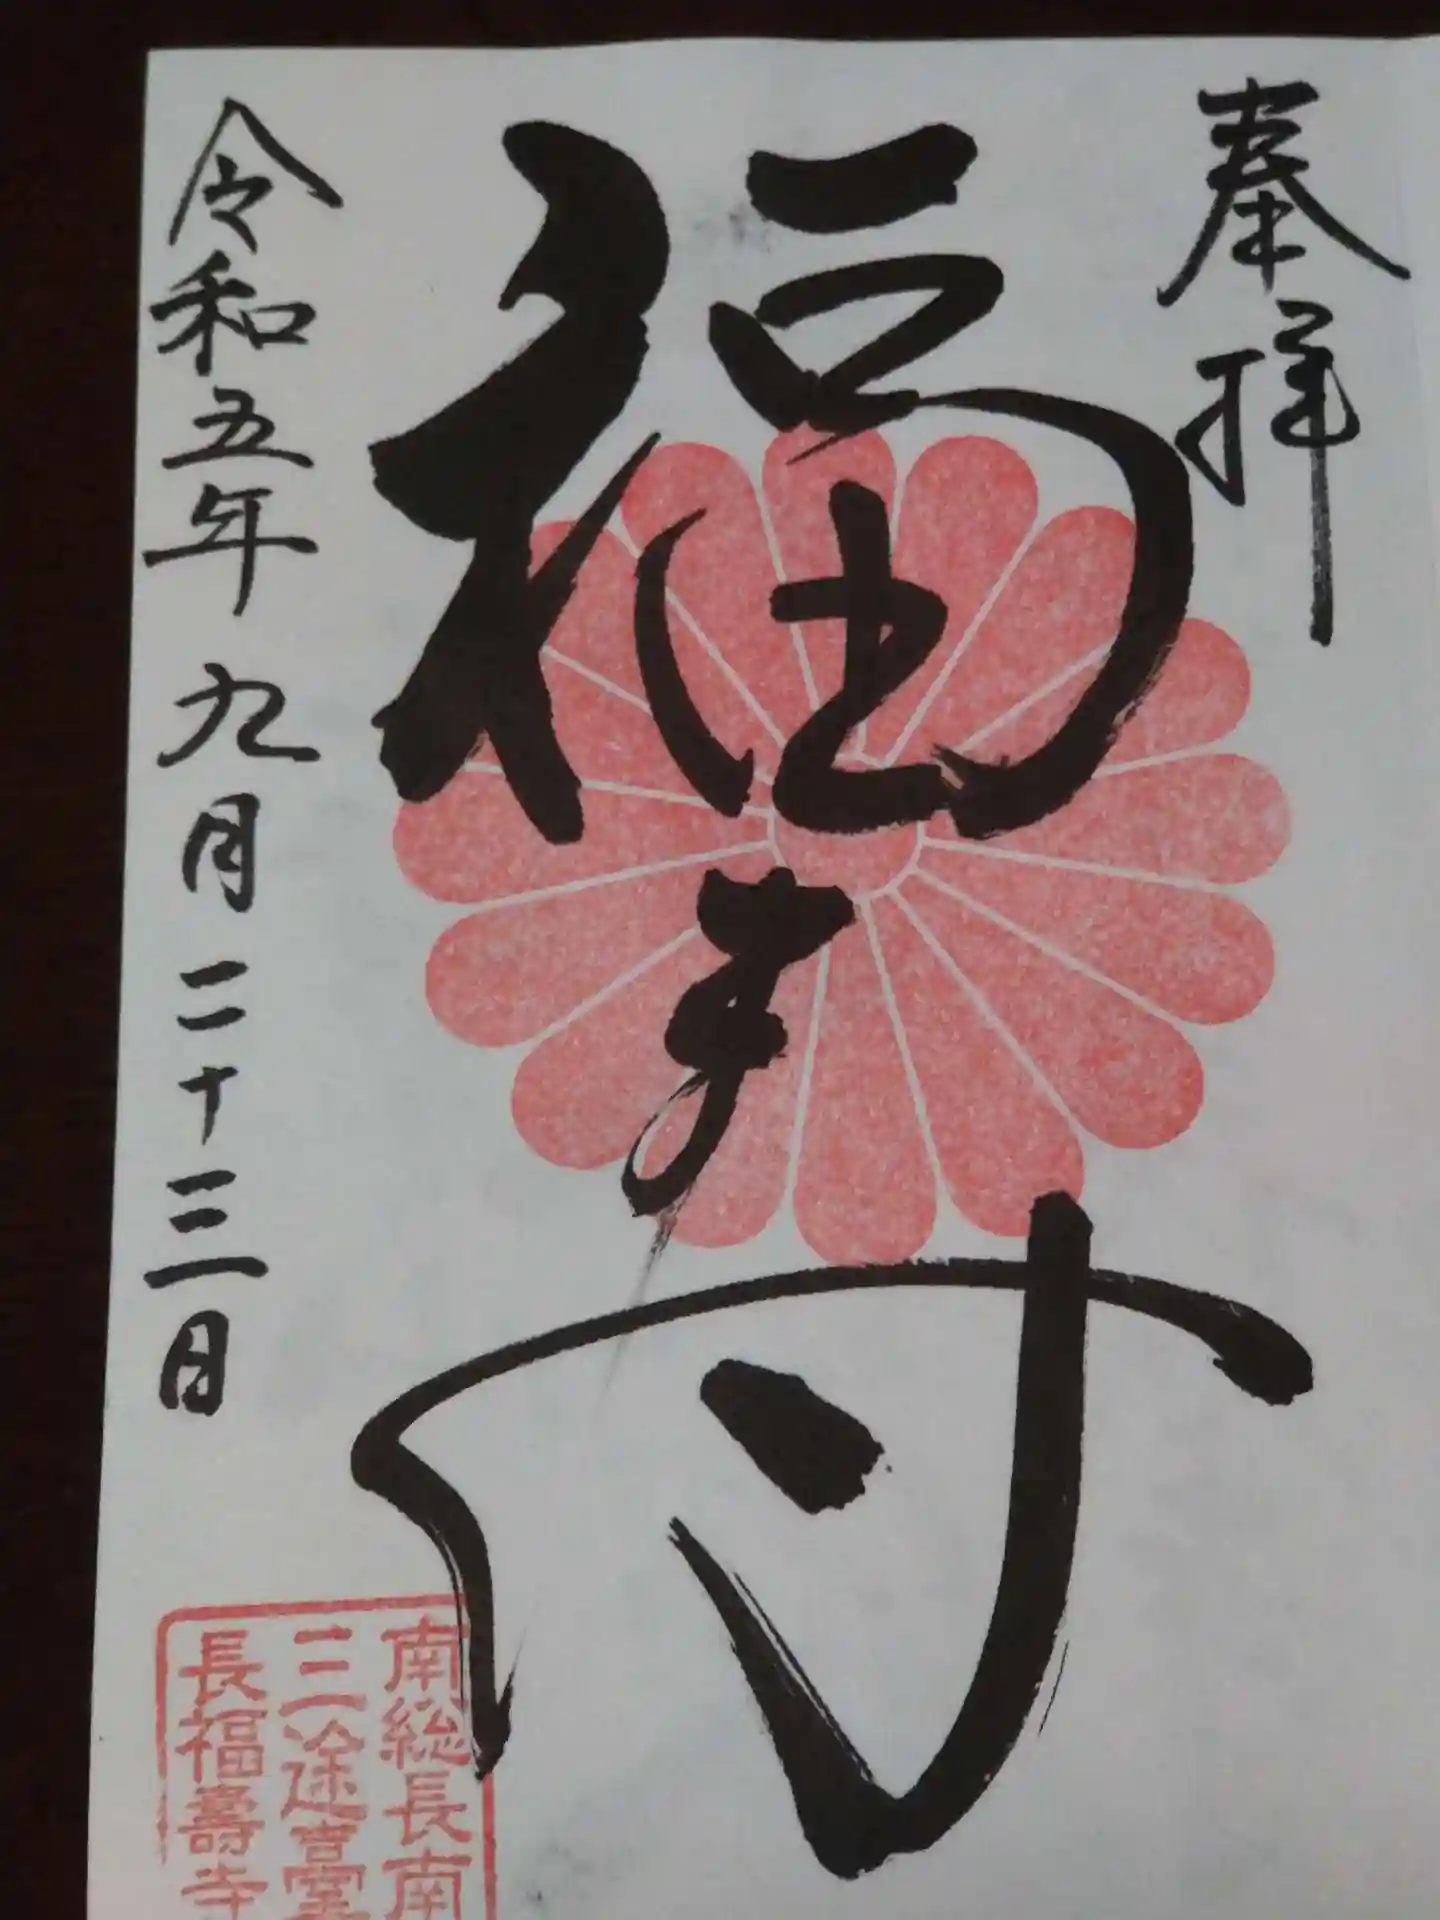 奉拝
福寿
令和五年 九月二十三日
南総長南
三途臺
長福壽寺